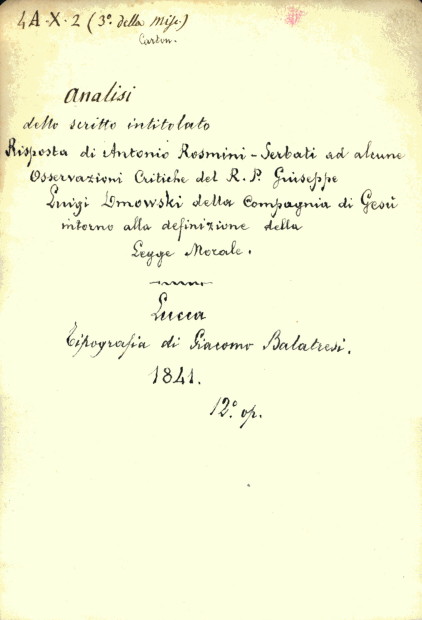 4A-X-2 (3º. della Misc.)
Carton.
Analisi
dello scritto intitolato
Risposta di Antonio Rosmini-Serbati ad alcune
Osservazioni Critiche del R. P. Giuseppe
Luigi Dmowski della Compagnia di Gesù
intorno alla definizione della
Legge Morale.
Lucca
Tipografia di Giacomo Balatresi.
1841.
12º. op.